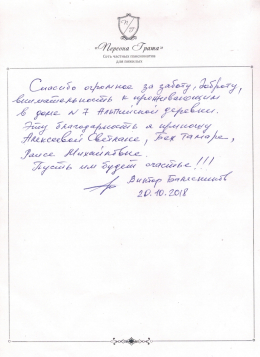 «Персона Грата»
Сеть частных пансионатов
для пожилых
Спасибо огромное за заботу, доброту,
внимательность к проживающим
в доме №7 Альпийской деревни.
Эту благодарность я приношу
Алексеевой Светлане, Бех Тамаре,
Раисе Михайловне.
Пусть им будет счастье!!!
Виктор
20.10.2018